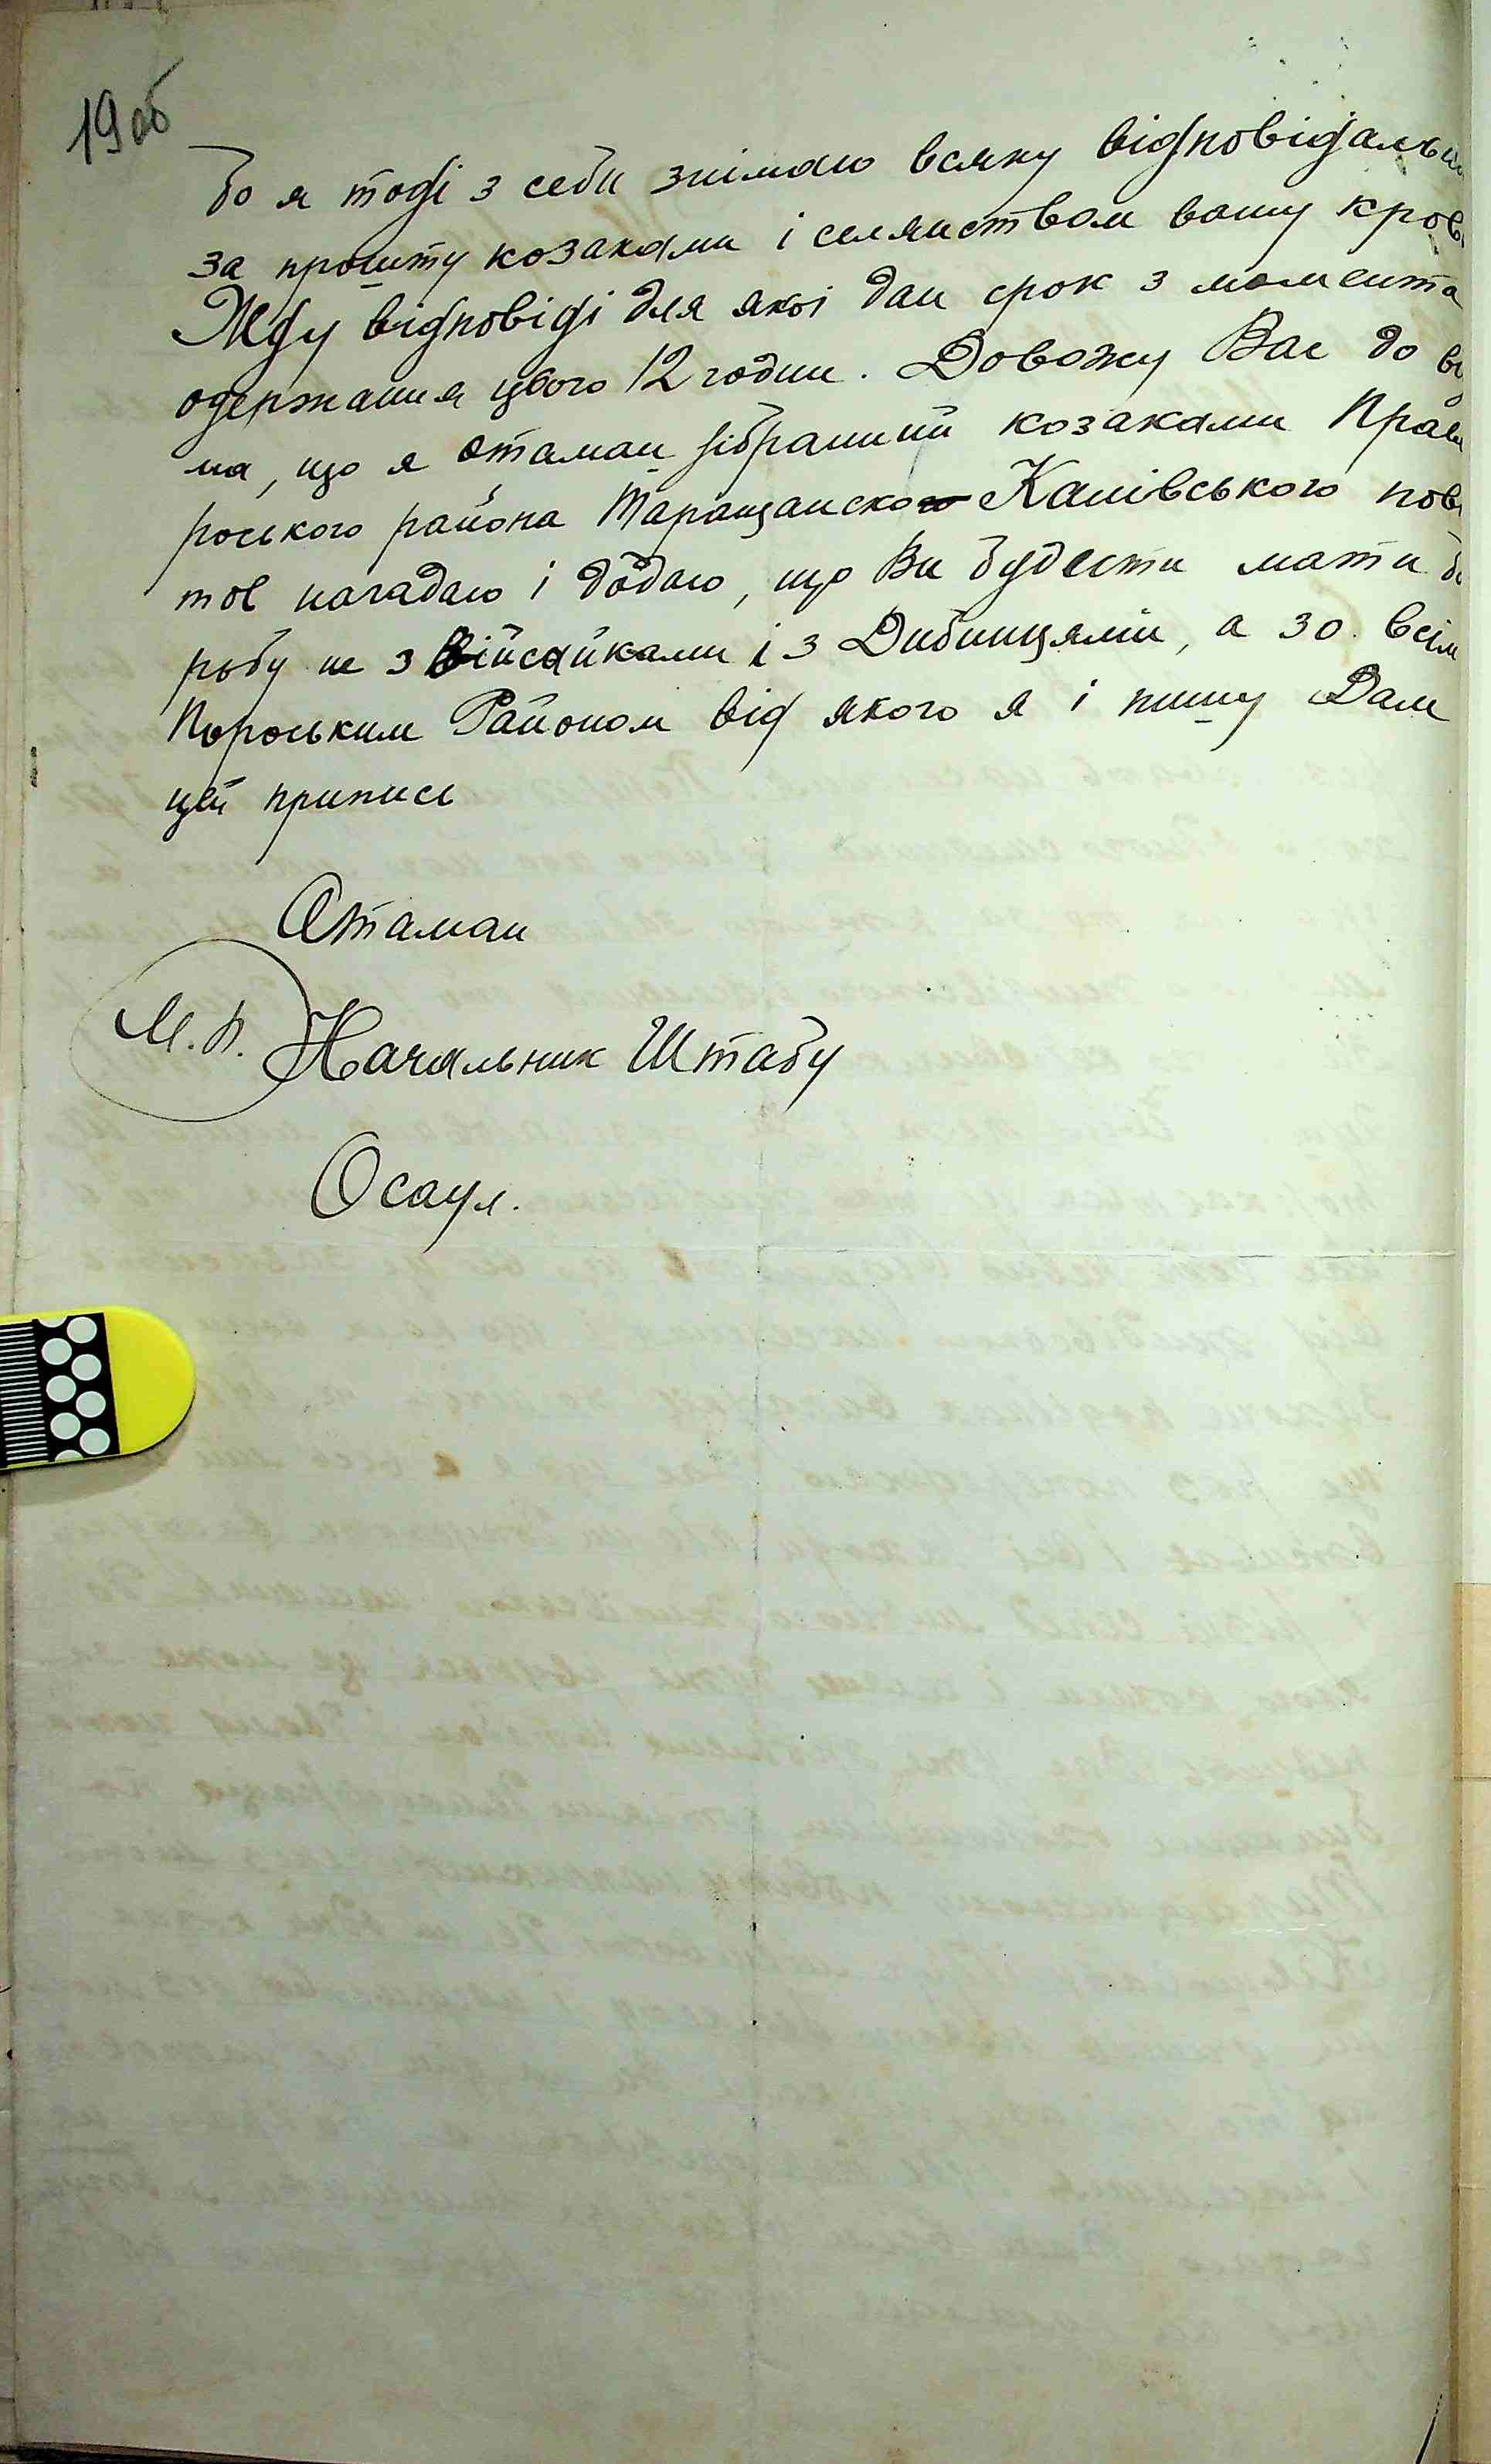 19 об
бо я тоді з себи знімаю всяку відповідальн
за пролиту козаками і селянством вашу кров
Жду відповіді для якої дан срок з момента
одержания цього 12 годин. Довожу Вас до ві
ма, що я отаман зібраний козаками Прав
роського района Таращанско Канівського пов
тов нагадаю і додаю, що Ви будести мати бо
робу не з і з Дибинцями, а зо всім
Пороським Районом від якого я і пишу Вам
цей припись
Отаман
М.П. Начальник Штабу
Осаул.